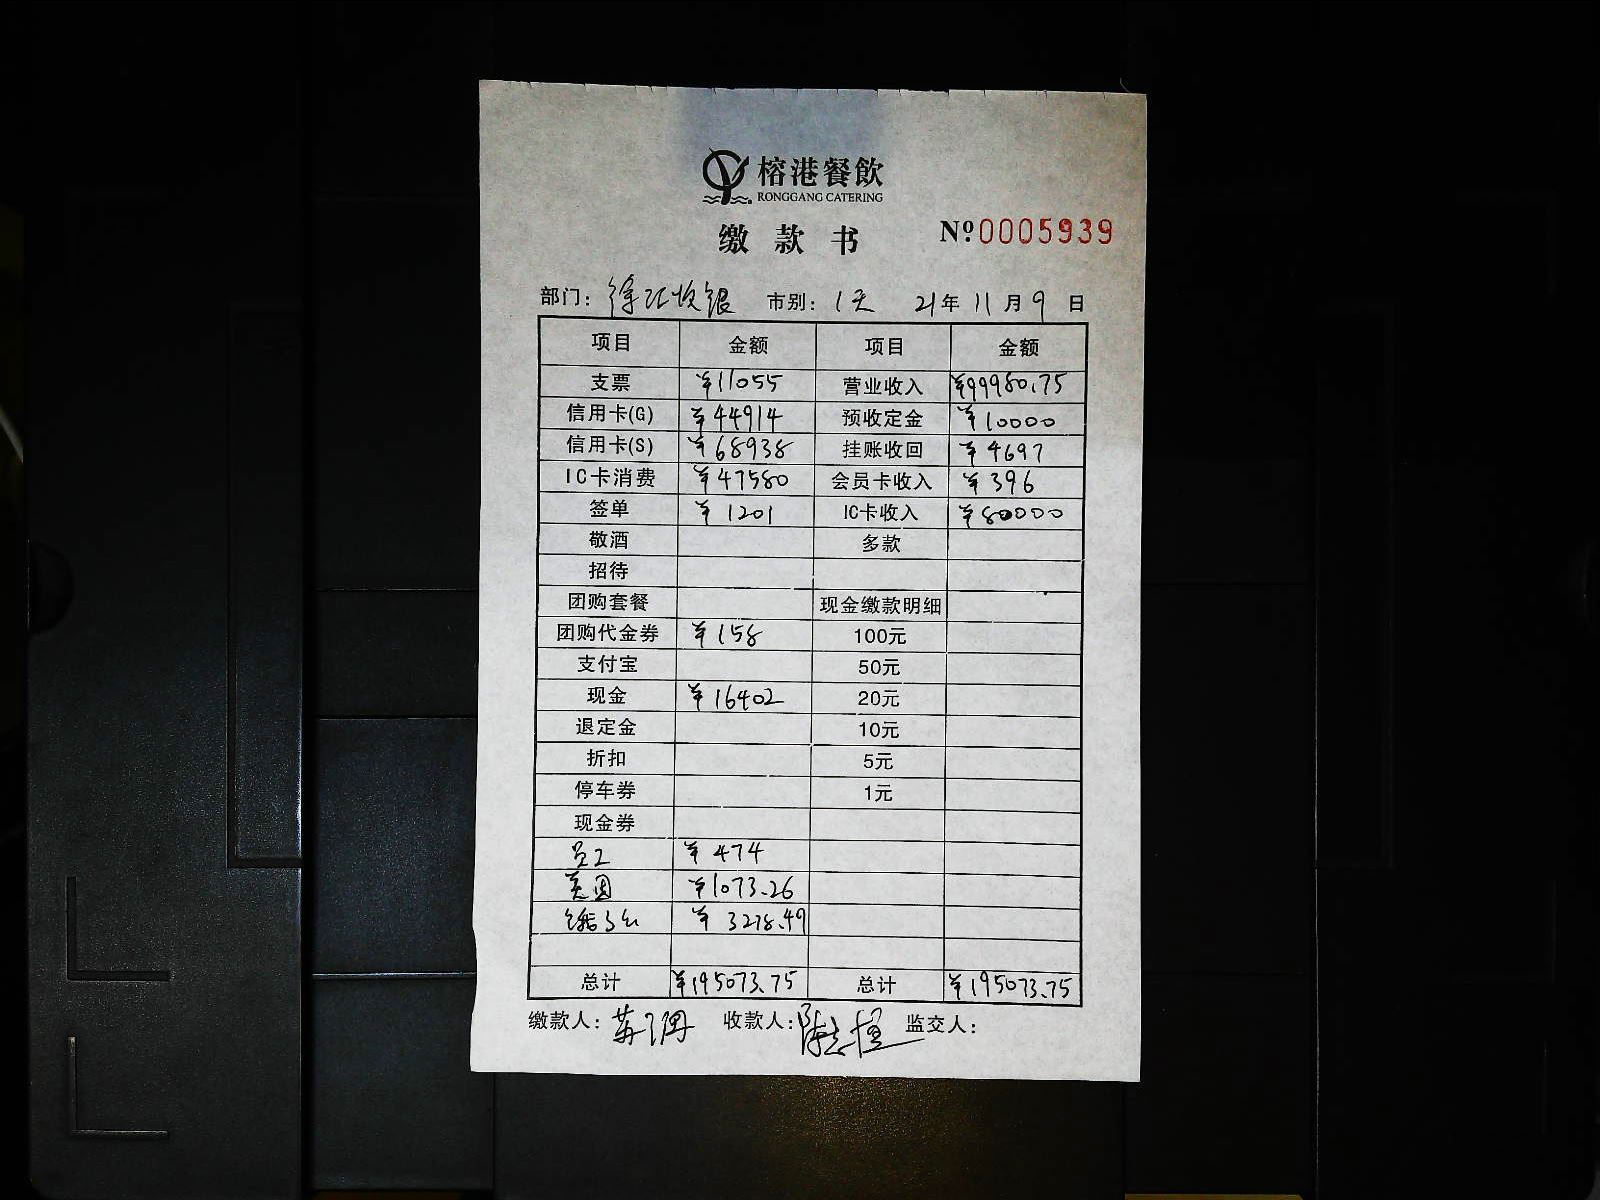 榕港餐飲
RONGGANG CATERING
缴款书 Nº:0005939
部门:徐汇收银 市别:1天 21年11月9日
项目 金额 项目 金额
支票 ¥11055 营业收入 ¥99980.75
信用卡(G) ¥44914 预收定金 ¥10000
信用卡(S) ¥68938 挂账收回 ¥4697
IC卡消费 ¥47580 会员卡收入 ¥396
签单 ¥1201 IC卡收入 ¥80000
敬酒 多款
招待
团购套餐 现金缴款明细
团购代金券 ¥158 100元
支付宝 50元
现金 ¥16402 20元
退定金 10元
折扣 5元
停车券 1元
现金券
员工 ¥474
美团 ¥1073.26
饿了么 ¥3278.49
总计 ¥195073.75 总计 ¥195073.75
缴款人: 收款人: 监交人: